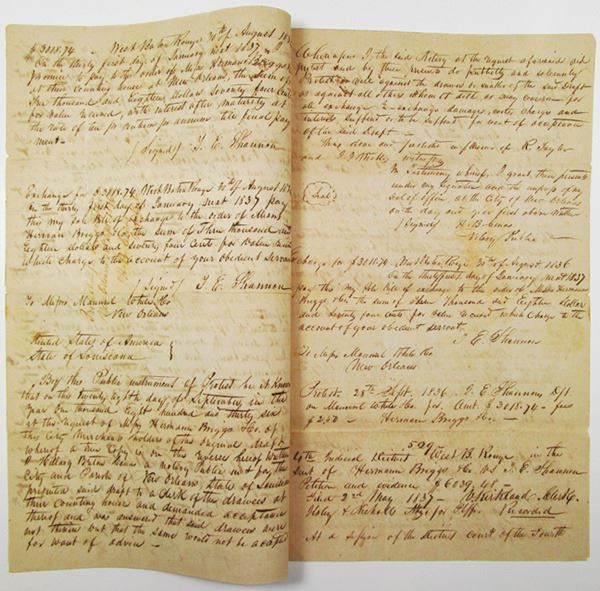 $3018.74 West Baton Rouge 30th August 183
On the thirty first day of January next 1837 I
promise to pay to the order of Messrs Hermann Briggs & Co
at their counting house at New Orleans, the sum of
Three thousand and eighteen dollars seventy four cents
for value received, with interest after maturity at
the rate of ten per centum per annum till final pay
ment-
(Signed) T. E. Shannon
Exchange for $3018.74 West Baton Rouge 30th of August 18
On the thirty first day of January next 1837 pay
this my Sole Bill of Exchange to the order of Messrs
Herman Briggs & Co the sum of Three thousand and
Eighteen dollars and seventy four cents for Value
Which charge to the account of your obedient Servant
(Signed) T. E. Shannon
To Messrs Maunsel White & Co
New Orleans
United States of America
State of Louisiana
By this Public instrument of Protest be it Known
that on the twenty Eighth day of September, in the
year One thousand Eight hundred and thirty six
at the request of Messrs Hermann Briggs & Co. of
this City Merchants holders of the original draft
whereof a true Copy is on the reverse hereof written
I a notary Public in & for the
City and Parish of New Orleans State of Louisiana
presented said draft to a clerk of the drawees at
their Counting house and demanded acceptance
thereof and was answered that said drawees were
not therein but that the same would not be accepted
for want of advice -
Whereupon I the said Notary at the request aforesaid did
protest and by these presents do publicly and solemnly
Protest as well against the drawer or maker of the said Draft
as against all others whom it doth or may concern for
all exchange, re-exchange damages, costs charges and
interests suffered or to be suffered for want of acceptance
of the said Draft -
Thus done and protested in presence of R Taylor
and witnesses
In testimony whereof, I grant these presents
under my signature and the impress of my
seal of office at the City of New Orleans
on the day and year first above written
(Seal)
(Signed) H. B. Cenas
Notary Public
Exchange for $3018.74 West Baton Rouge 30th of August 1836
On the thirty first day of January next 1837
pay this my Sole Bill of exchange to the order of Messrs Hermann
Briggs & Co. the sum of Three thousand and Eighteen Dollars
and Seventy four cents for value received which charge to the
account of your obedient servant.
T. E. Shannon
To Messrs Maunsel White & Co
New Orleans
Protest. 28th Sept. 1836. T. E. Shannons Dft.
on Maunsel White & Co. for Amt. $3018.74 - fees
Hermann Briggs & Co. -
599
4th Judicial District West B. Rouge in the
Suit of Hermann Briggs & Co vs T. E. Shannon
Petition and evidence $6039.48
Filed 2nd May 1837- Kirkland Clerk
& Nicholls Attys. for Plffs. Recorded
At a session of the District court of the Fourth